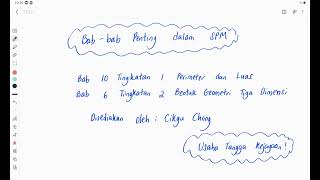 Bab-bab Penting dalam SPM
Bab 10 Tingkatan 1 Perimeter dan Luas
Bab 6 Tingkatan 2 Bentuk Geometri Tiga Dimensi
Disediakan oleh : Cikgu Chong
Usaha Tangga Kejayaan!